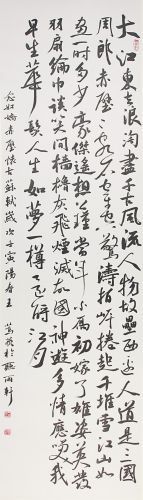 大江東去浪淘盡千古風流人物故壘西邊人道是三國
周郎赤壁亂石穿空驚濤拍岸捲起千堆雪江山如
畫一時多少豪傑遙想公瑾當年小喬初嫁了雄姿英發
羽扇綸巾談笑間檣櫓灰飛煙滅故國神遊多情應笑我
早生華髮人生如夢一樽還酹江月
念奴嬌赤壁懷古蘇軾歲次壬寅陽春王
於聽雨軒